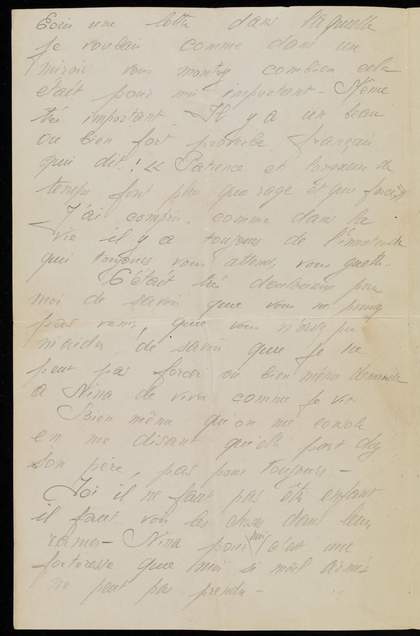 Ecris une lettre dans laquelle
je voulais comme dans un
miroir vous montrer combien cela
était pour moi important. Même
très important. Il y a un beau
ou bien fort proverbe français
qui dit: « Patience et longueur de
temps font plus que rage et que force
J'ai compris comme dans la
vie il y a toujours de
qui toujours vous attend, vous guette.
C'était très douloureux pour
moi de savoir que vous ne
pas venir, que vous n'avez pu
de savoir que je ne
peux pas forcer ou bien même demander
à Nina de vivre comme je vis
Bien même qu'on me console
en me disant qu'elle part chez
son père, pas pour toujours -
Ici il ne faut pas être enfant
il faut voir les choses dans leur
Nina pour lui c'est une
forteresse que lui si mal armé
ne peut pas prendre -